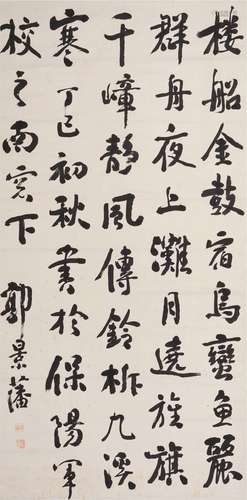 樓船金鼓宿烏蠻魚麗
群舟夜上灘月遶旌旗
千嶂靜風傳鈴柝九溪
寒丁巳初秋書於保陽軍
校之南窓下
郭景藩